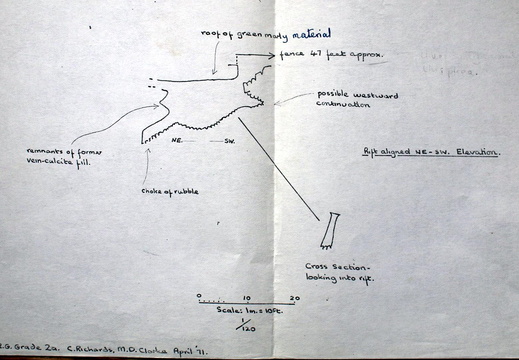 roof of green marly material
fence 47 feet approx.
possible westward
continuation
remnants of former
vein-calcite fill.
NE. SW.
Rift aligned NE-SW. Elevation.
choke of rubble
Cross Section-
looking into rift.
0 10 20
Scale: 1in. = 10ft.
1/120
.G. Grade 2a. C. Richards, M.D. Clarke April '71.